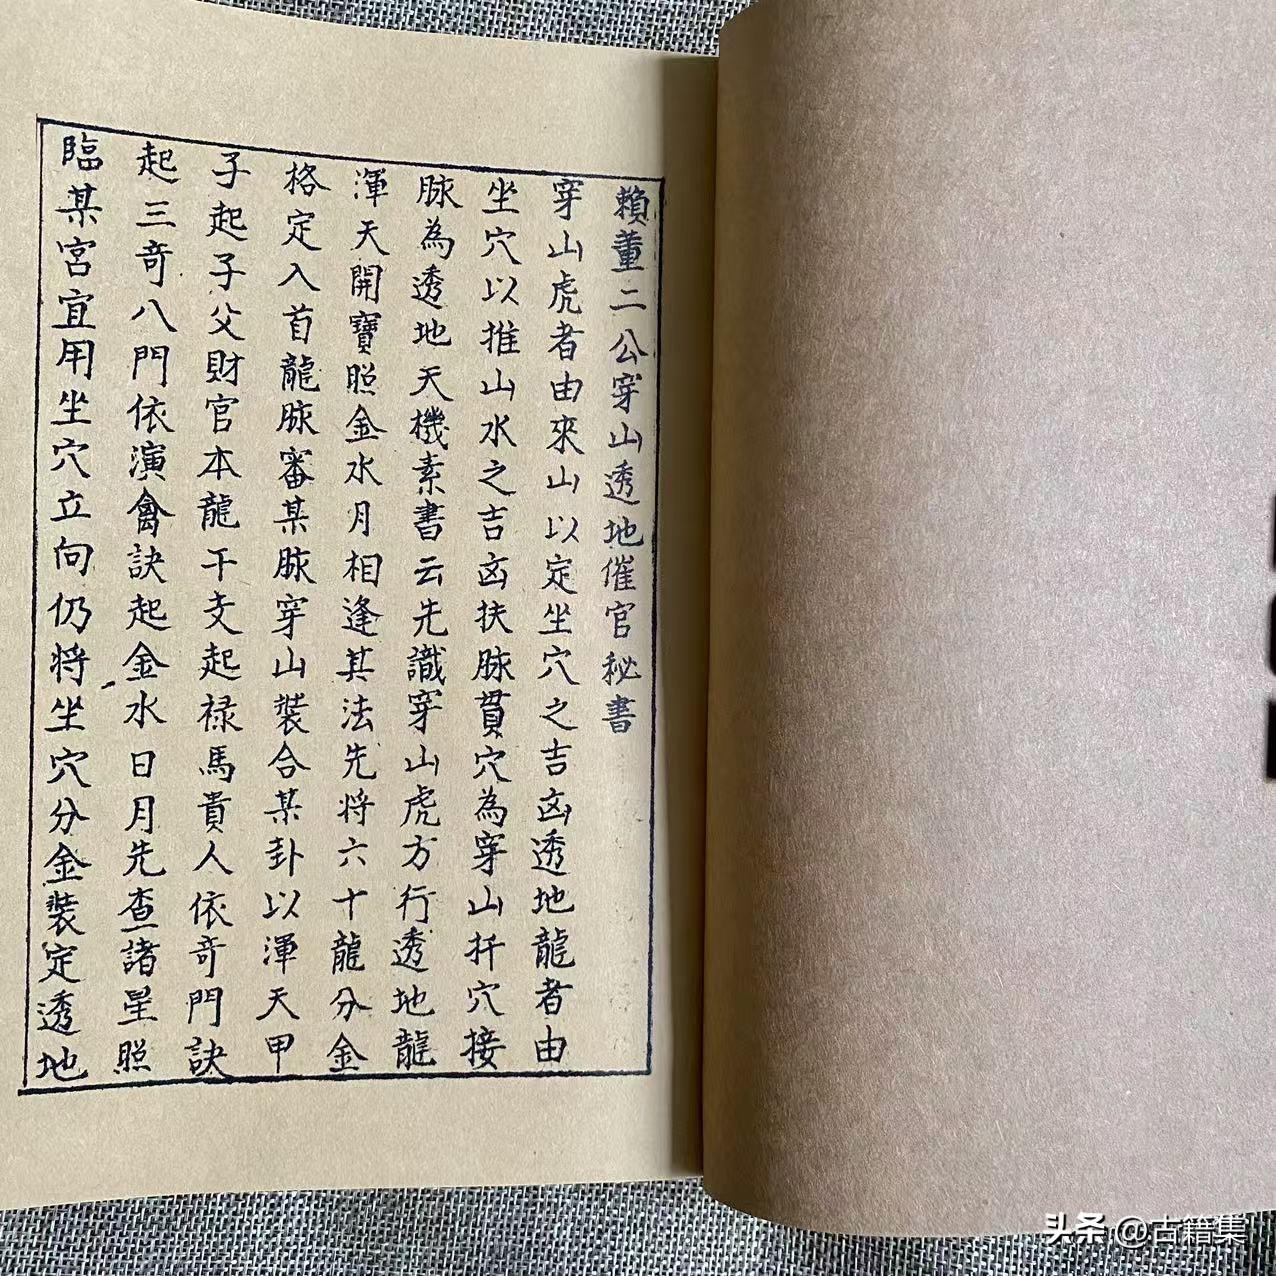 賴董二公穿山透地催官秘書
穿山虎者由來山以定坐穴之吉凶透地龍者由
坐穴以推山水之吉凶扶脉貫穴為穿山扦穴接
脉為透地天機素書云先識穿山虎方行透地龍
渾天開寶照金水月相逢其法先將六十龍分金
格定入首龍脉審某脉穿山裝合某卦以渾天甲
子起子父財官本龍干支起祿馬貴人依奇門訣
起三奇八門依演禽訣起金水日月先查諸星照
臨某宮宜用坐穴立向仍將坐穴分金裝定透地
头条 @古籍集